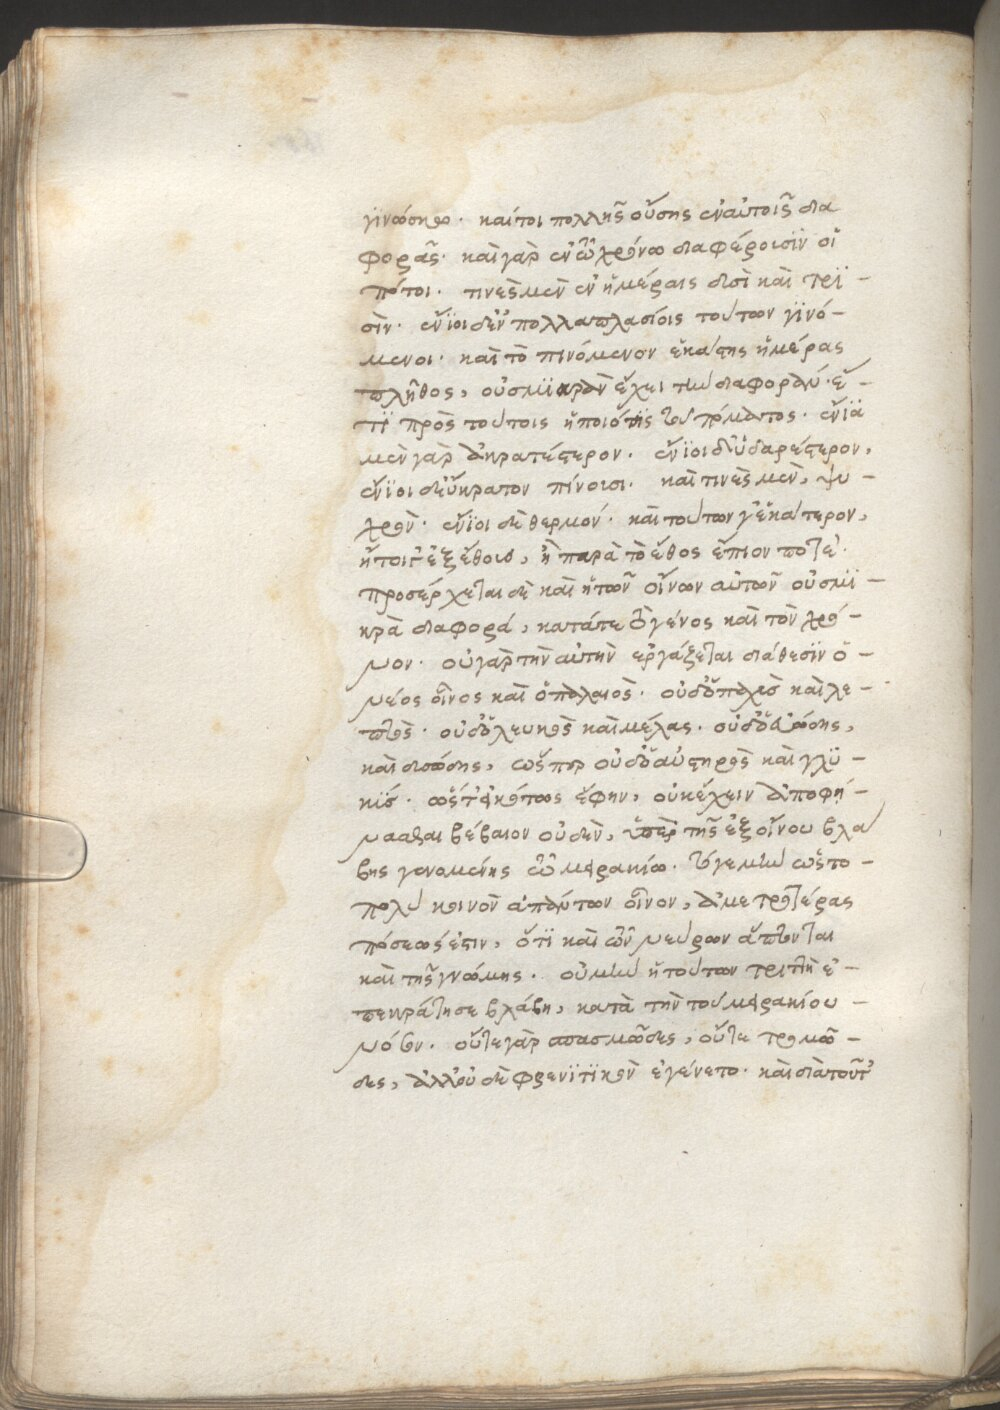 γϊνώσκω· καίτοι πολλῆς οὔσης ἐν αὐτοῖς δια
φορᾶς· καὶ γὰρ ἐν τῶ χρόνω διαφέρουσϊν οἱ
πότοι· τινὲς μὲν ἐν ἡμέραις δυσὶ καὶ τρϊ-
σὶν· ἔνϊοι δ' ἐν πολλαπλασίοις τούτων γϊνό-
μενοι· καὶ τὸ πινόμενον ἑκάστης ἡμέρας
πλῆθος, οὐ σμϊκρὰν ἔχει τὴν διαφοράν· ἔ-
τϊ πρὸς τούτοις ἡ ποιότης τοῦ πόματος· ἔνϊα
μὲν γὰρ ἀκρατέστερον· ἔνϊοι δ' ὑδαρέστερον,
ἔνϊοι δ' εὔκρατον πίνουσι· καὶ τινὲς μὲν, ψυ-
χρὸν· ἔνϊοι δὲ θερμόν· καὶ τούτων γ' ἑκάτερον,
ἤτοι γ' ἐξ ἔθους, ἢ παρὰ τὸ ἔθος ἔπιον ποτέ·
προσέρχεται δὲ καὶ ἡ τῶν οἴνων αὐτῶν οὐ σμϊ-
κρὰ διαφορά, κατά τε τὸ γένος καὶ τὸν χρό-
νον· οὐ γὰρ τὴν αὐτὴν ἐργάζεται διάθεσϊν ὁ
νέος οἶνος καὶ ὁ παλαιὸς· οὐδ' ὁ παχὺς καὶ λε-
πτὸς· οὐδ' ὁ λευκὸς καὶ μέλας· οὐδ' ὁ εὐώδης,
καὶ δυσώδης, ὥσπερ οὐδ' ὁ αὐστηρὸς καὶ γλϋ-
κύς· ὥστ' εἰκότως ἔφην, οὐκ ἔχειν ἀποφή-
νασθαι βέβαιον οὐδὲν, ὑπὲρ τῆς ἐξ οἴνου βλά
βης γενομένης τῶ μειρακίω· τό γε μὴν ὥς το-
πολὺ κοινὸν ἁπάντων οἶνον, ἀμετροτέρας
πόσεώς ἐστιν, ὅτϊ καὶ τῶν νεύρων ἅπτονται
καὶ τῆς γνώμης· οὐ μὴν ἡ τούτων τριττὴ ἐ-
πεκράτησε βλάβη, κατὰ τὴν τοῦ μειρακίου
νόσον· οὔτε γὰρ σπασμῶδες, οὔτε τρομῶ-
δες, ἀλλ' οὐδὲ φρενϊτϊκὸν ἐγένετο· καὶ διὰ τοῦτ'